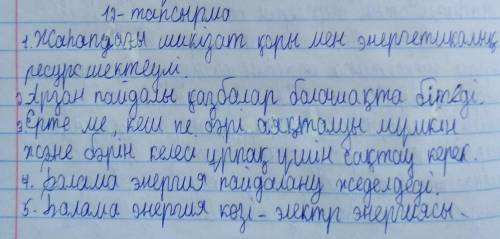 12-тапсырма
1. Жаһандағы шикізат қоры мен энергетикалық
ресурс шектеулі.
2. Арзан пайдалы қазбалар болашақта бітеді.
3. Ерте ме, кеш пе бәрі аяқталуы мүмкін
және бәрін келесі ұрпақ үшін сақтау керек.
4. Балама энергия пайдалану жеделдеді.
5. Балама энергия көзі - электр энергиясы.